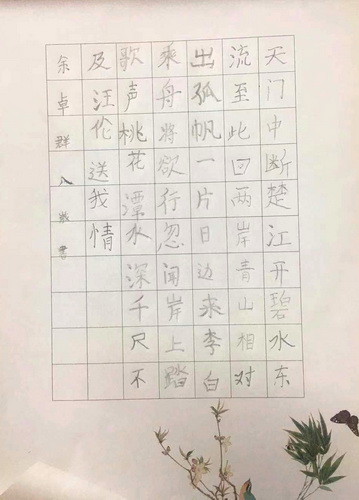 天门中断楚江开碧水东
流至此回两岸青山相对
出孤帆一片日边来李白
乘舟将欲行忽闻岸上踏
歌声桃花潭水深千尺不
及汪伦送我情
余卓群八